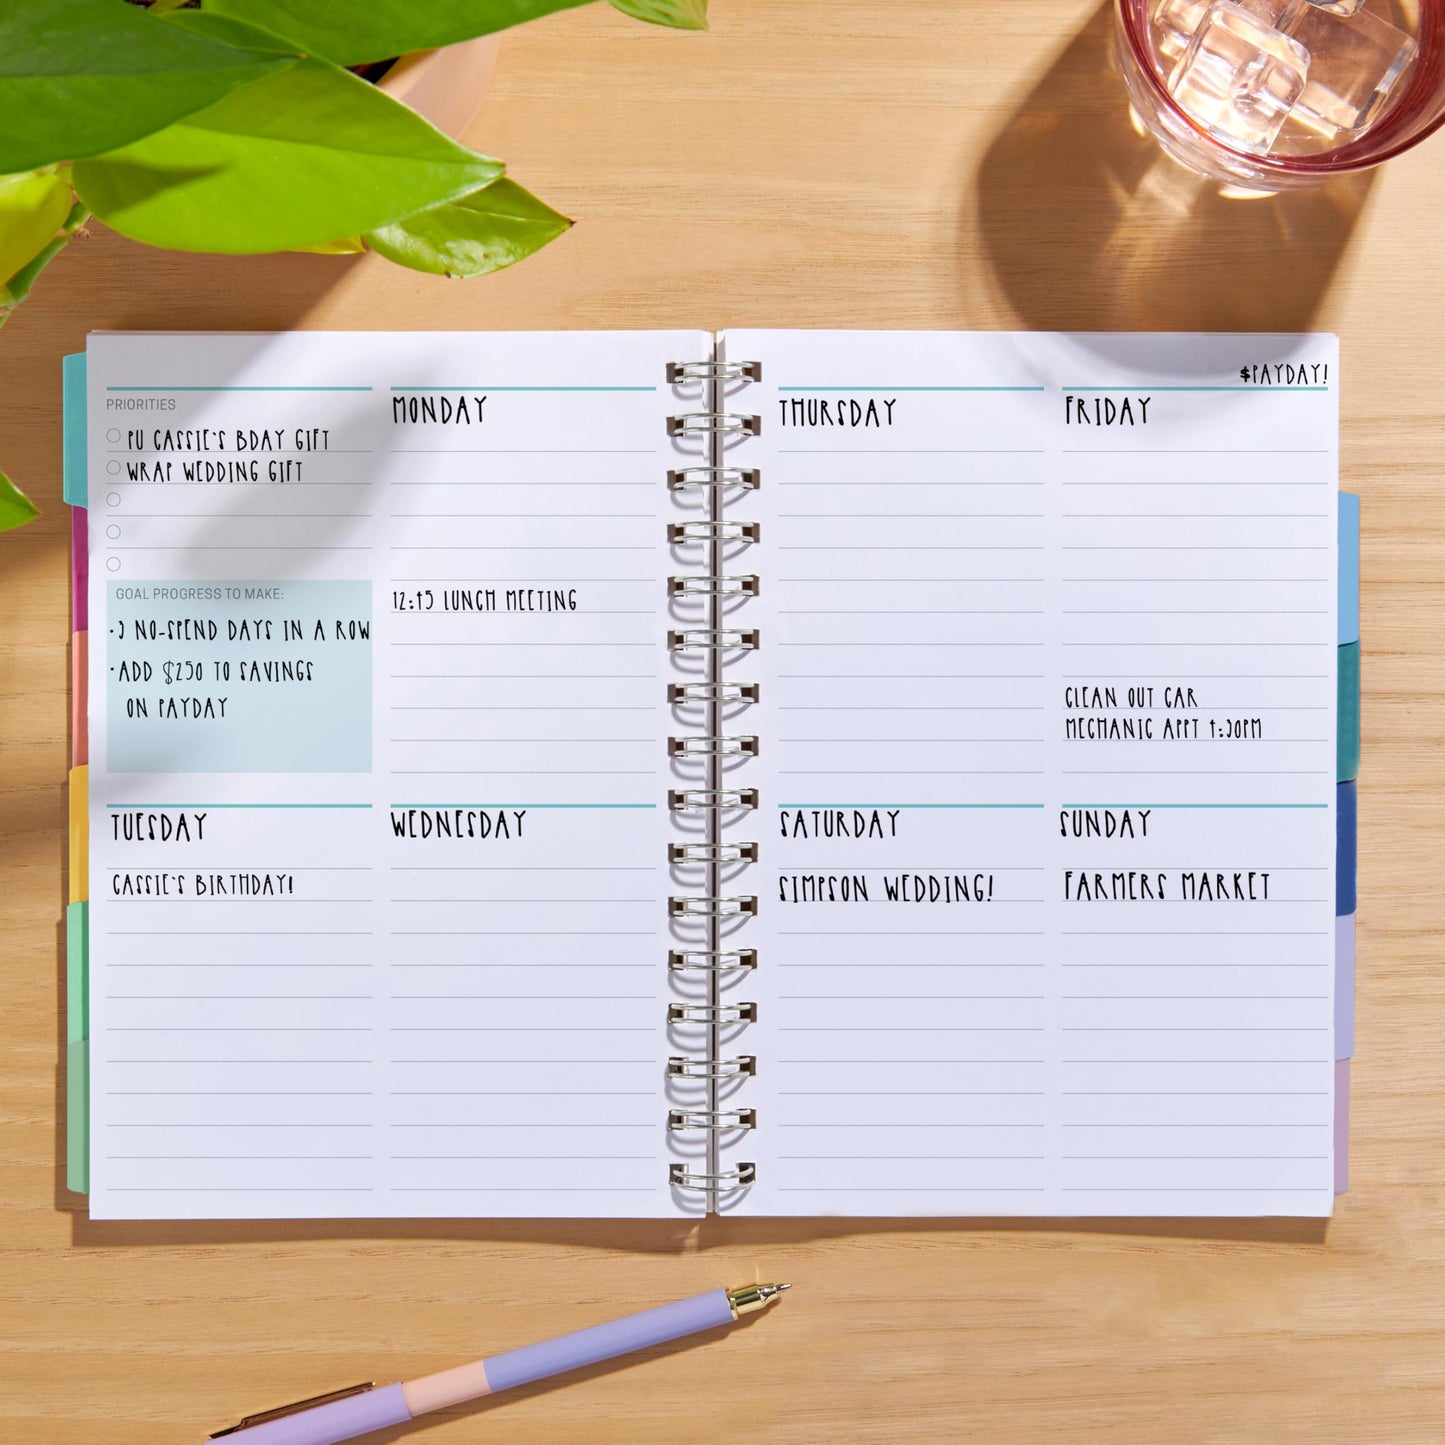 PRIORITIES
PU CASSIE'S BDAY GIFT
WRAP WEDDING GIFT
GOAL PROGRESS TO MAKE:
·3 NO-SPEND DAYS IN A ROW
·ADD $250 TO SAVINGS
ON PAYDAY
MONDAY
12:45 LUNCH MEETING
TUESDAY
CASSIE'S BIRTHDAY!
WEDNESDAY
THURSDAY
$PAYDAY!
FRIDAY
CLEAN OUT CAR
MECHANIC APPT 4:30PM
SATURDAY
SIMPSON WEDDING!
SUNDAY
FARMERS MARKET